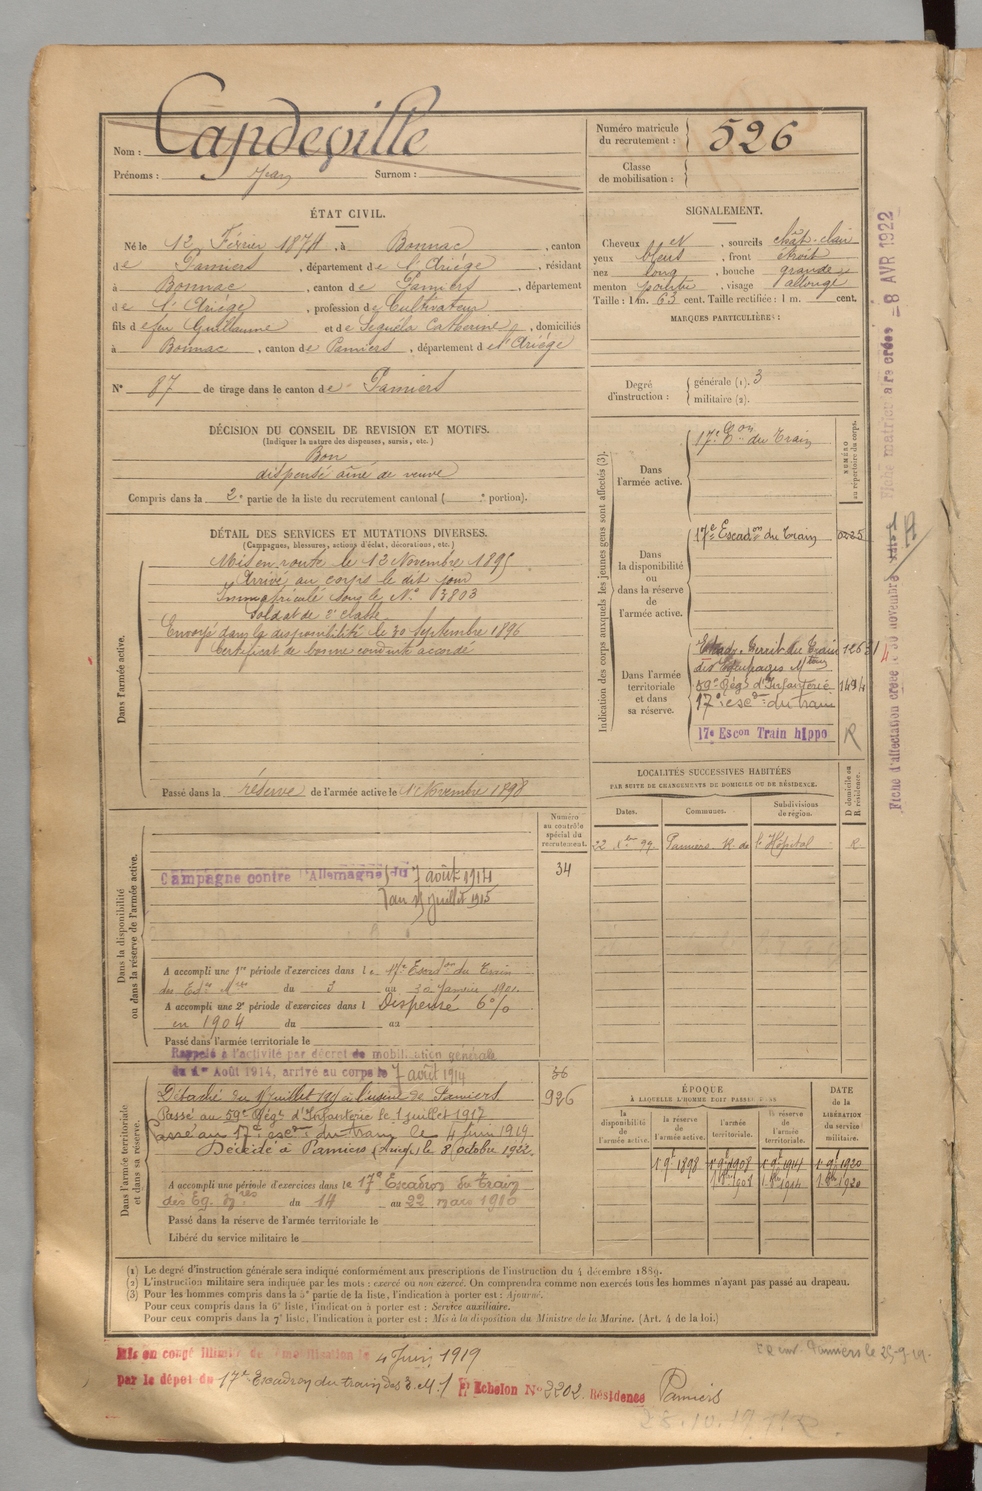 Nom : Capdeville
Prénoms : Jean Surnom :
Numéro matricule du recrutement : 526
Classe de mobilisation :
ÉTAT CIVIL.
Né le 12 Février 1874, à Bonnac, canton
de Pamiers, département de l'Ariège, résidant
à Bonnac, canton de Pamiers, département
de l'Ariège, profession de Cultivateur
fils de feu Guillaume et de Séguéla Catherine, domiciliés
à Bonnac, canton de Pamiers, département de l'Ariège
N° 87 de tirage dans le canton de Pamiers
SIGNALEMENT.
Cheveux sourcils chât-clair
yeux bleus, front étroit
nez long, bouche grande
menton pointu, visage allongé
Taille : 1 m. 63 cent. Taille rectifiée : 1 m. cent.
MARQUES PARTICULIÈRES :
Degré d'instruction : générale (1). 3
militaire (2).
DÉCISION DU CONSEIL DE REVISION ET MOTIFS.
(Indiquer la nature des dispenses, sursis, etc.)
Bon
dispensé aîné de veuve
Compris dans la 2e partie de la liste du recrutement cantonal ( e portion).
DÉTAIL DES SERVICES ET MUTATIONS DIVERSES.
(Campagnes, blessures, actions d'éclat, décorations, etc.)
Dans l'armée active.
Mis en route le 13 Novembre 1895
Arrivé au corps le dit jour
Immatriculé sous le N° 3803
Soldat de 2e classe
Envoyé dans la disponibilité le 30 Septembre 1896
Certificat de bonne conduite accordé
Passé dans la réserve de l'armée active le 1er Novembre 1898
Indication des corps auxquels les jeunes gens sont affectés (3).
NUMÉRO au répertoire du corps.
Dans l'armée active.
17e Eon du Train
Dans la disponibilité ou dans la réserve de l'armée active.
17e Escadon du Train
Dans l'armée territoriale et dans sa réserve.
Escadr. Territ. du Train
des Equipages Mres
59e Rég. d'Infanterie
17e escon du train
17e Escon Train hippo R
LOCALITÉS SUCCESSIVES HABITÉES
PAR SUITE DE CHANGEMENTS DE DOMICILE OU DE RÉSIDENCE.
Dates. Communes. Subdivisions de région. D domicile ou R résidence.
Pamiers R. de l'Hôpital R
Dans la disponibilité ou dans la réserve de l'armée active.
Numéro au contrôle spécial du recrutement.
34
Campagne contre l'Allemagne du 7 août 1914
au juillet 1915
A accompli une 1re période d'exercices dans le 17e Escadon du Train
des Eqes Mres du 3 au 30 Janvier 1901
A accompli une 2e période d'exercices dans l Dispensé 6%
en 1904 du au
Passé dans l'armée territoriale le
Rappelé à l'activité par décret de mobilisation générale
du 1er Août 1914, arrivé au corps le 7 août 1914
Dans l'armée territoriale et dans sa réserve.
36
926
Détaché du juillet à l'usine de Pamiers
Passé au 59e Régt d'Infanterie le 1 juillet 1917
Passé au 17e escon du train le 4 Juin 1919
Décédé à Pamiers (Ariège) le 8 octobre 1922.
A accompli une période d'exercices dans le 17e Escadron du Train
des Eq. Mres du 14 au 22 mars 1910
Passé dans la réserve de l'armée territoriale le
Libéré du service militaire le
ÉPOQUE
À LAQUELLE L'HOMME DOIT PASSER DANS
la disponibilité de l'armée active. la réserve de l'armée active. l'armée territoriale. la réserve de l'armée territoriale.
DATE de la LIBÉRATION du service militaire.
(1) Le degré d'instruction générale sera indiqué conformément aux prescriptions de l'instruction du 4 décembre 1889.
(2) L'instruction militaire sera indiquée par les mots : exercé ou non exercé. On comprendra comme non exercés tous les hommes n'ayant pas passé au drapeau.
(3) Pour les hommes compris dans la 5e partie de la liste, l'indication à porter est : Ajourné.
Pour ceux compris dans la 6e liste, l'indication à porter est : Service auxiliaire.
Pour ceux compris dans la 7e liste, l'indication à porter est : Mis à la disposition du Ministre de la Marine. (Art. 4 de la loi.)
Mis en congé illimité de démobilisation le 4 Juin 1919
par le dépôt du 17e Escadron du train des E. M. Echelon N° 2202. Résidence Pamiers
8 AVR 1922